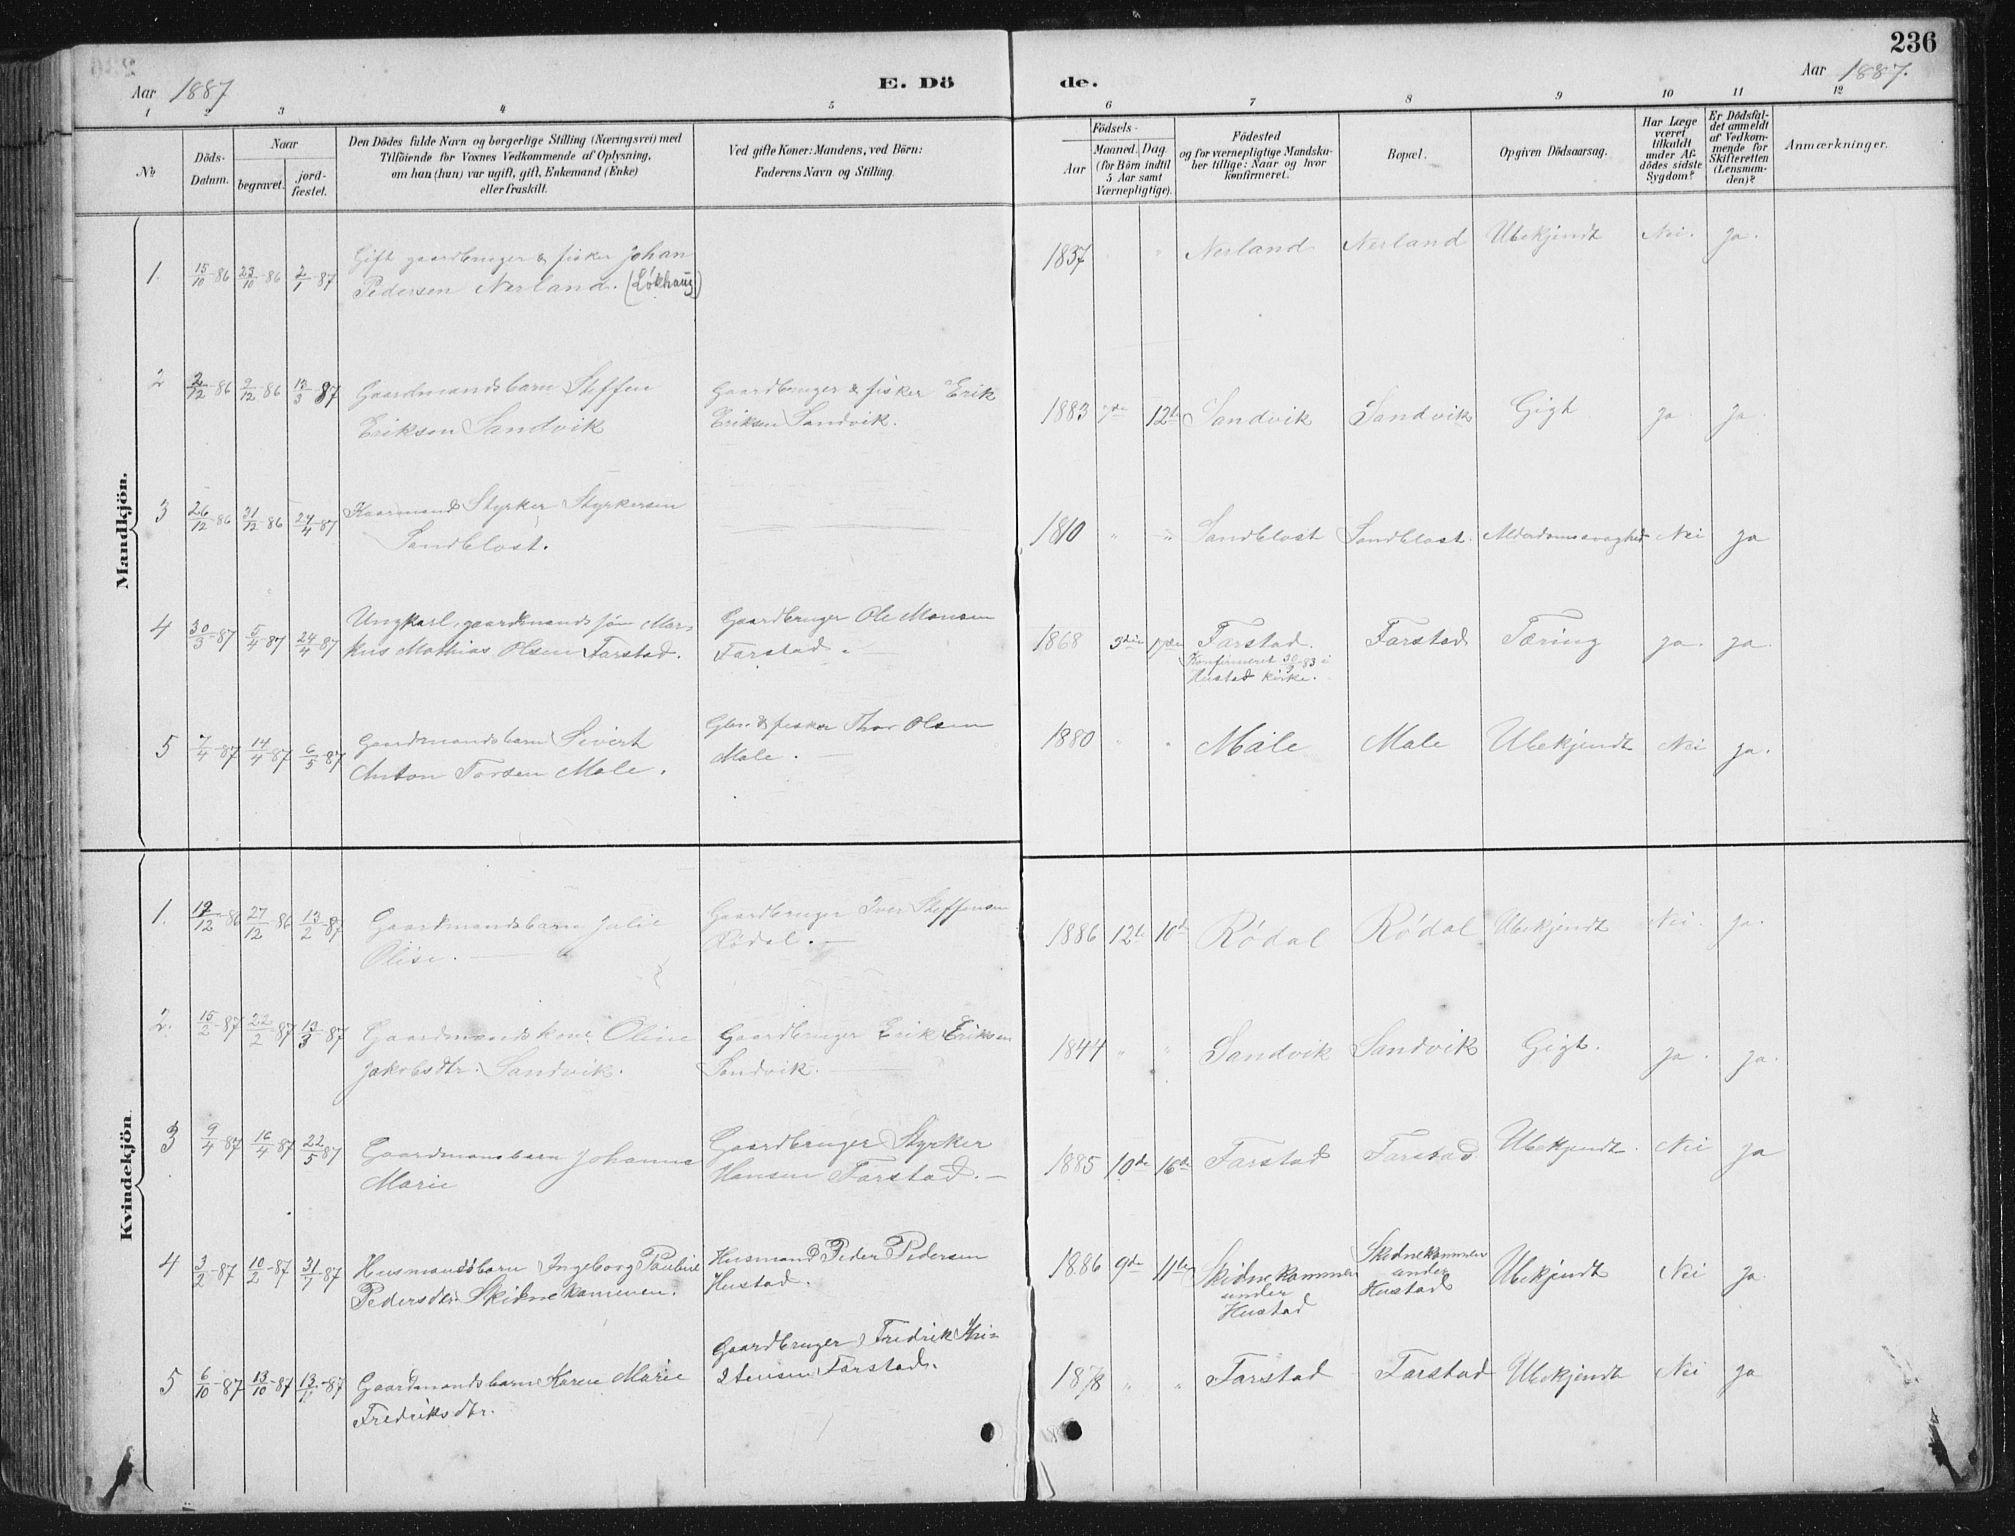 236
Aar 1887
E. Dö
de.
Aar 1887.
1 2 3 4 5 6 7 8 9 10 11 12
No
Döds-
Datum.
Naar
begravet.
jord-
fæstet.
Den Dödes fulde Navn og borgerlige Stilling (Næringsvei) med
Tilföiende for Voxnes Vedkommende af Oplysning,
om han (hun) var ugift, gift, Enkemand (Enke)
eller fraskilt.
Ved gifte Koner: Mandens, ved Börn:
Faderens Navn og Stilling.
Födsels-
Aar
Maaned. Dag
(for Börn indtil
5 Aar samt
Værnepligtige).
Födested
og for værnepligtige Mandska-
ber tillige: Naar og hvor
konfirmeret.
Bopæl.
Opgiven Dödsaarsag.
Har Læge
været
tilkaldt
under Af-
dödes sidste
Sygdom?
Er Dödsfal-
det anmeldt
af Vedkom-
mende for
Skifteretten
(Lensman-
den)?
Anmærkninger.
Mandkjön.
1. 15/10-86 23/10-86 2/1-87 Gift gaardbruger & fisker Johan
Pedersen Nerland. (Lökhaug)
1837 " " Nerland Nerland Ubekjendt Nei. ja.
2 2/12-86 9/12-86 13/3-87 Gaardmandsbarn Steffen
Eriksen Sandvik
Gaardbruger & fisker Erik
Eriksen Sandvik.
1883 12te Sandvik Sandvik Gigt ja ja
3 26/12-86 31/12-86 24/4-87 Kaarmand Styrker Styrkersen
Sandblost.
1810 " " Sandblost Sandblost. Alderdomssvaghed Nei ja
4 30/3-87 5/4-87 24/4-87 Ungkarl, gaardmandssön Mar-
kus Mathias Olsen Farstad.
Gaardbruger Ole Monsen
Farstad.
1868 3die Farstad.
Konfirmeret 30/9-83 i
Hustad kirke.
Farstad Tæring ja. ja.
5 7/4-87 14/4-87 6/5-87 Gaardmandsbarn Sivert
Anton Torsen Male.
Gbr. & fisker Thor Olsen
Male.
1880 " " Måle Male Ubekjendt Nei ja.
Kvindekjön
1. 19/12-86 27/12-86 13/2-87 Gaardmandsbarn Julie
Olise.
Gaardbruger Iver Steffensen
Rödal.
1886 12te 10de Rödal Rödal Ubekjendt Nei. ja.
2. 15/2-87 22/2-87 13/3-87 Gaardmandskone Oline
Jakobsdtr. Sandvik.
Gaardbruger Erik Eriksen
Sandvik.
1844 " " Sandvik Sandvik Gigt. ja. ja.
3 9/4-87 16/4-87 22/5-87 Gaardmansbarn Johanna
Marie
Gaardbruger Styrker
Hansen Farstad.
1885 10de 16de Farstad Farstad. Ubekjendt. Nei ja
4 3/2-87 10/2-87 31/7-87 Husmandsbarn Ingeborg Pauline
Pedersdtr. Skidnekammen.
Husmand Peder Pedersen
Hustad.
1886 9de 11te Skidnekammen
under
Hustad
Skidnekammen
under
Hustad
Ubekjendt Nei ja
5 6/10-87 13/10-87 13/11-87 Gaardmandsbarn Karen Marie
Fredriksdtr.
Gaardbruger Fredrik Kri-
stensen Farstad.
1878 " " Farstad Farstad Ubekjendt Nei ja